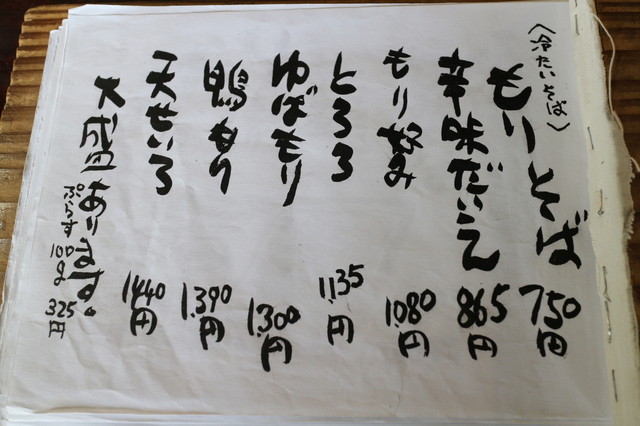 〈冷たいそば〉
もりそば 750円
辛味だいこん 865円
もり好み 1080円
とろろ 1135円
ゆばもり 1300円
鴨もり 1,390円
天せいろ 1440円
大盛あります。
ぷらす100g 325円